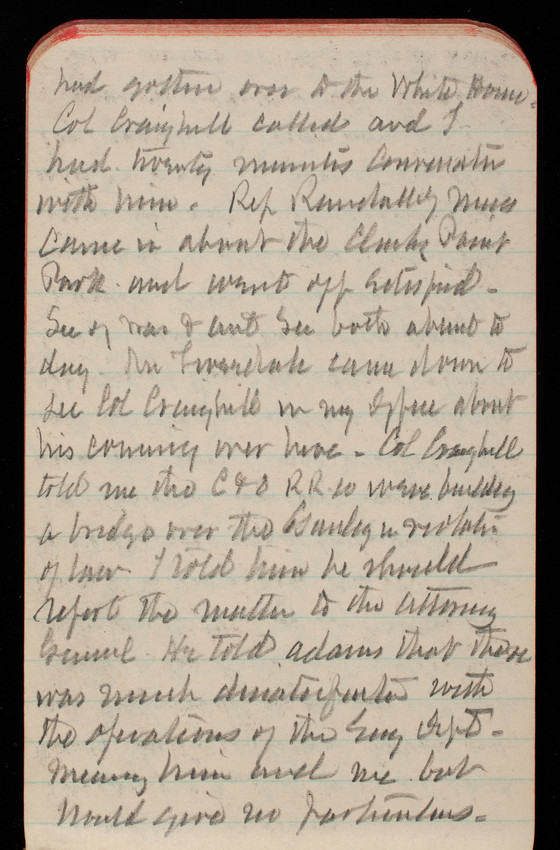 had gotten over to the White House.
Col Craighill called and I
had twenty minutes conversation
with him. Rep Randall of Mass
came in about the Clarks Point
Park and went off satisfied.
Sec of War & Ast Sec both absent to
day. Mr came down to
see Col Craighill in my Office about
his coming over here. Col Craighill
told me the C & O RR Co were building
a bridge over the Gauley in violation
of law. I told him he should
report the matter to the Attorney
General. He told Adams that there
was much dissatisfaction with
the operations of the Eng Dept.
Meaning him and me but
would give no particulars.